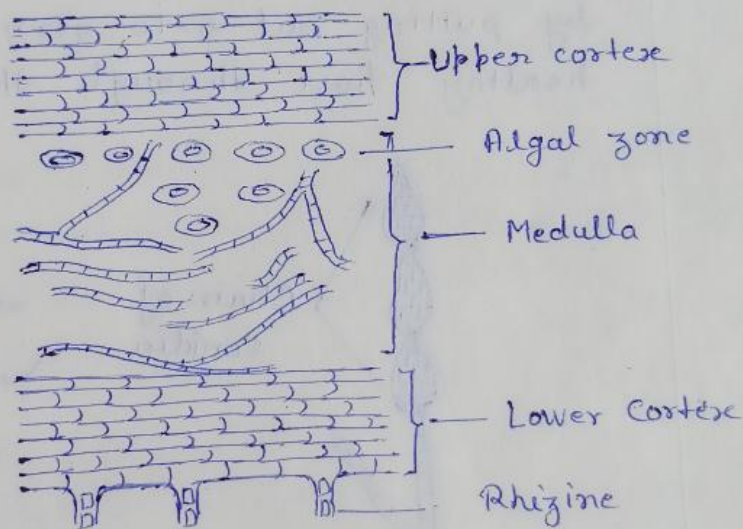 Upper cortex
Algal zone
Medulla
Lower Cortex
Rhizine